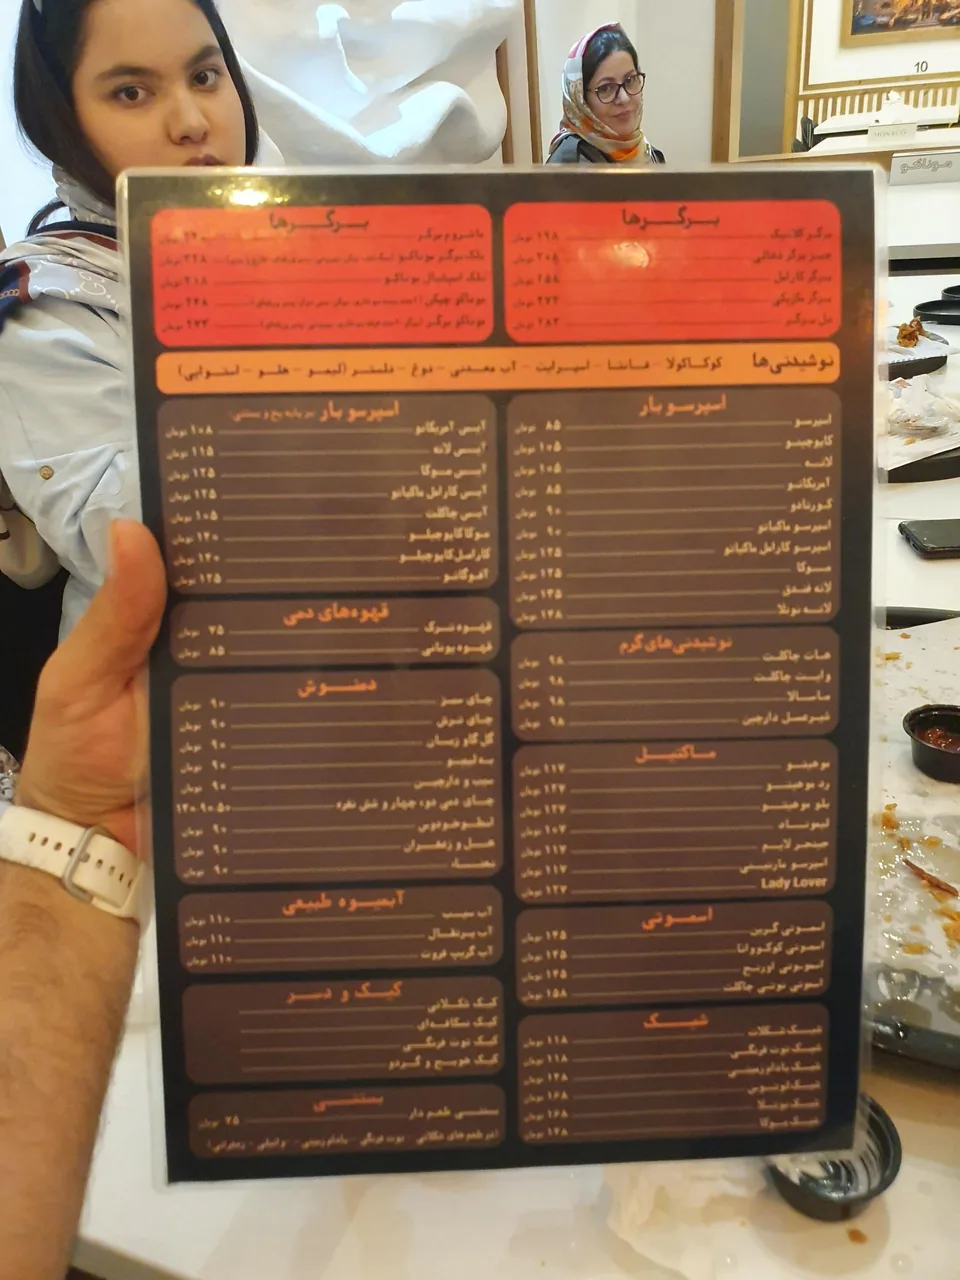 10
MONACO
موناکو
برگرها
برگر کلاسیک ۱۹۸ تومان
چیز برگر ذغالی ۲۰۸ تومان
برگر کارامل ۲۵۸ تومان
برگر مکزیکی ۲۷۲ تومان
دبل برگر ۲۸۳ تومان
برگرها
ماشروم برگر تومان
بلک برگر موناکو ۲۲۸ تومان
بلک اسپشیال موناکو ۳۱۸ تومان
موناکو چیکن ۲۴۸ تومان
موناکو برگر ۲۷۳ تومان
نوشیدنی‌ها کوکاکولا - فانتا - اسپرایت - آب معدنی - دوغ - دلستر (لیمو - هلو - استوایی)
اسپرسو بار
اسپرسو ۸۵ تومان
کاپوچینو ۱۰۵ تومان
لاته ۱۰۵ تومان
آمریکانو ۸۵ تومان
کورتادو ۹۰ تومان
اسپرسو ماکیاتو ۹۰ تومان
اسپرسو کارامل ماکیاتو ۱۲۵ تومان
موکا ۱۲۵ تومان
لاته فندق ۱۲۵ تومان
لاته نوتلا ۱۲۸ تومان
اسپرسو بار بر پایه یخ و بستنی
آیس آمریکانو ۱۰۸ تومان
آیس لاته ۱۱۵ تومان
آیس موکا ۱۲۵ تومان
آیس کارامل ماکیاتو ۱۲۵ تومان
آیس چاکلت ۱۰۵ تومان
موکا کاپوچیلو ۱۴۰ تومان
کارامل کاپوچیلو ۱۴۰ تومان
آفوگاتو ۱۲۵ تومان
قهوه‌های دمی
قهوه ترک ۷۵ تومان
قهوه یونانی ۸۵ تومان
نوشیدنی‌های گرم
هات چاکلت ۹۸ تومان
وایت چاکلت ۹۸ تومان
ماسالا ۹۸ تومان
شیر عسل دارچین ۹۸ تومان
دمنوش
چای سبز ۹۰ تومان
چای ترش ۹۰ تومان
گل گاو زبان ۹۰ تومان
به لیمو ۹۰ تومان
سیب و دارچین ۹۰ تومان
چای دمی دو، چهار و شش نفره ۵۰ ۹۰ ۱۲۰
اسطوخودوس ۹۰ تومان
هل و زعفران ۹۰ تومان
نعناء ۹۰ تومان
ماکتیل
موهیتو ۱۱۷ تومان
رد موهیتو ۱۲۷ تومان
بلو موهیتو ۱۲۷ تومان
لیموناد ۱۰۷ تومان
جینجر لایم ۱۱۷ تومان
اسپرسو مارتینی ۱۱۷ تومان
Lady Lover ۱۲۷ تومان
آبمیوه طبیعی
آب سیب ۱۱۰ تومان
آب پرتقال ۱۱۰ تومان
آب گریپ فروت ۱۱۰ تومان
اسموتی
اسموتی گرین ۱۴۵ تومان
اسموتی کوکوبوانا ۱۴۵ تومان
اسموتی اورنج ۱۴۵ تومان
اسموتی نوتی چاکلت ۱۵۸ تومان
کیک و دسر
کیک شکلاتی
کیک نسکافه‌ای
کیک توت فرنگی
کیک هویج و گردو
شیک
شیک شکلات ۱۱۸ تومان
شیک توت فرنگی ۱۱۸ تومان
شیک بادام زمینی ۱۲۸ تومان
شیک لوتوس ۱۶۸ تومان
شیک نوتلا ۱۶۸ تومان
شیک موکا ۱۲۸ تومان
بستنی
بستنی طعم دار ۷۵ تومان
(در طعم‌های شکلاتی - توت فرنگی - بادام زمینی - وانیلی - زعفرانی)